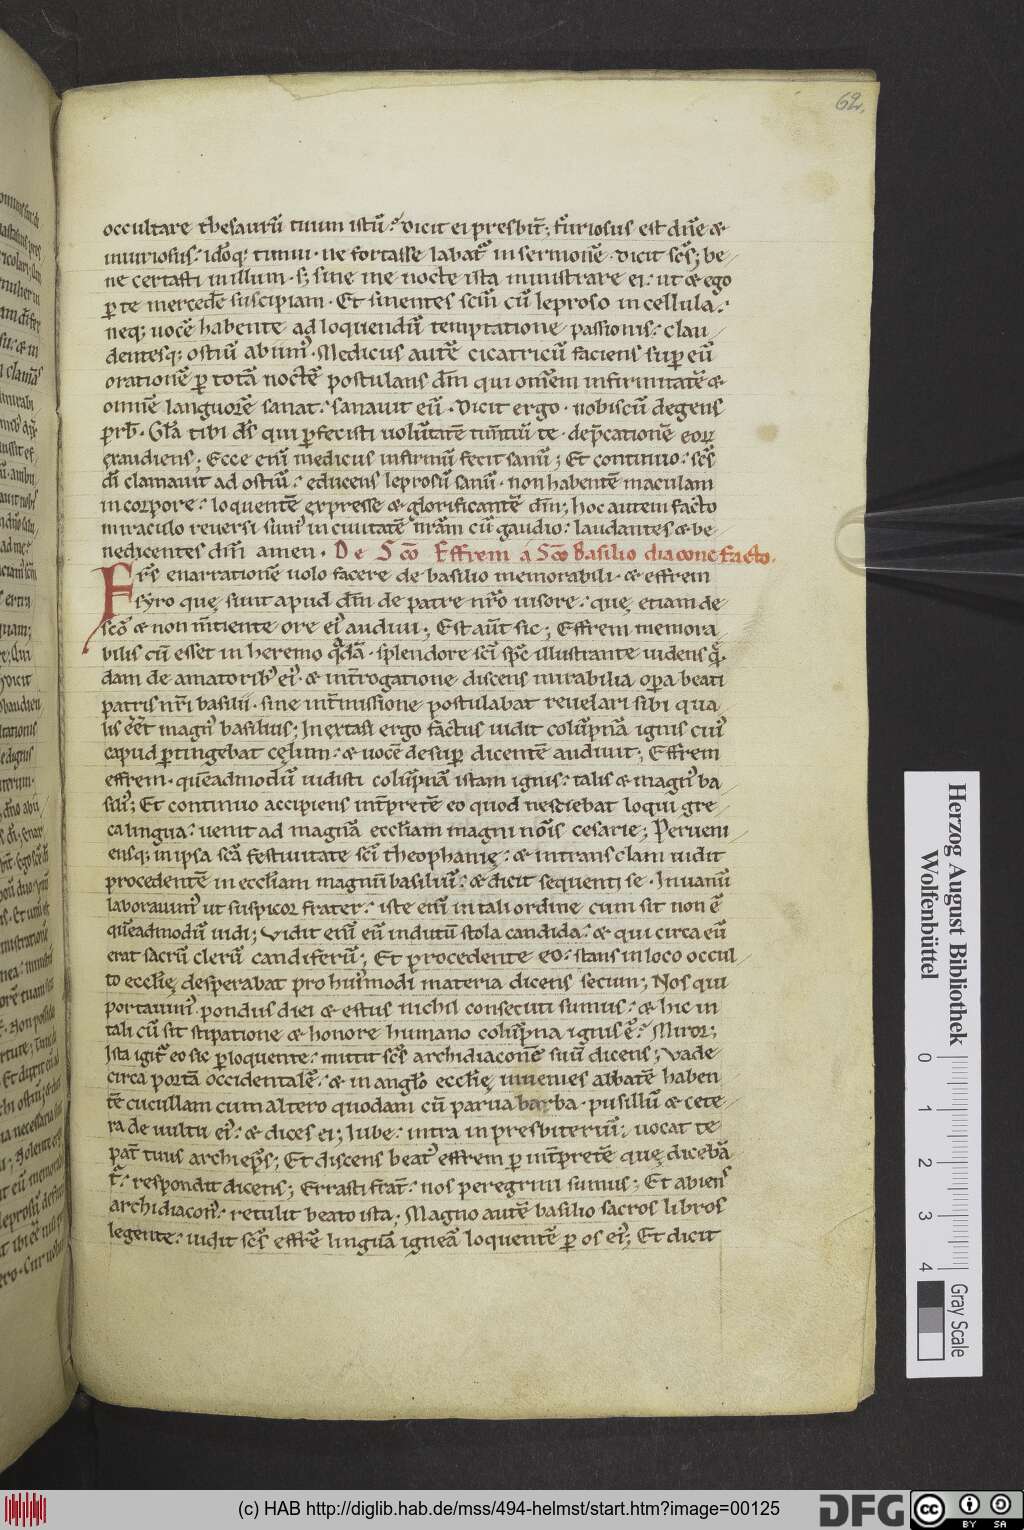 62.
occultare thesaurū tuum istū. Dicit ei presbit̄; furiosus est dn̄e &
iniuriosus. idoq; timui. ne fortasse labat᷑ in sermone. Dicit scs̄; be
ne certasti in illum. s; sine me nocte ista ministrare ei. ut & ego
p te mercedē suscipiam. Et sinentes scm̄ cū leproso in cellula.
neq; uocē habente ad loquendū temptatione passionis. clau
dentesq; ostiū abiim᷒. Medicus autē cicatricū faciens sup eū
orationē p totā noctē postulans dm̄ qui omēm infirmitatē &
omnē languorē sanat. sanauit eū. Dicit ergo. nobiscū degens
prb̄. Gl̄a tibi ds̄ qui pfecisti uolūtatē timentiū te. dep̄cationē eoꝝ
exaudiens; Ecce enī medicus infirmū fecit sanū; Et continuo. scs̄
dī clamauit ad ostiū. educens leprosū sanū. non habentē maculam
in corpore. loquentē expresse & glorificantē dm̄; hoc autem facto
miraculo reuersi sum᷒ in ciuitatē nr̄am cū gaudio. laudantes & be
nedicentes dm̄ amen. De Sc̄o Effrem a Sc̄o Basilio diacone facto.
Frs̄ enarrationē uolo facere de basilio memorabili. & effrem
syro quę sunt apud dm̄ de patre nr̄o uisore. quę etiam de
sc̄o & non m̄tiente ore ei᷒ audiui; Est aūt sic; Effrem memora
bilis cū esset in heremo q̄dā. splendore scī sp̄c illustrante uidens q̄
dam de amatorib᷒ ei᷒. & int̄rogatione discens mirabilia opa beati
patris nr̄i basilii. sine int̄missione postulabat reuelari sibi qua
lis eēt magn᷒ basilius; In extasi ergo factus uidit colūpnā ignis cui᷒
capud ptingebat cęlum. & uocē desup dicentē audiuit; Effrem
effrem. quēadmodū uidisti colūpnā istam ignis. talis & magn᷒ ba
sili᷒; Et continuo accipiens int̄pretē eo quod nesciebat loqui gre
ca lingua. uenit ad magnā eccliam magni nōis cesarie; Perueni
ensq; in ipsa scā festiuitate scī theophanię. & intrans clam uidit
procedentē in eccliam magnū basiliū. & dicit sequenti se. In uanū
laborauim᷒ ut suspicor frater. iste enī in tali ordine cum sit non ē
quēadmodū uidi; Vidit enī eū indutū stola candida. & qui circa eū
erat sacrū clerū candiferū; Et procedente eo. stans in loco occul
to ecclię desperabat pro hui᷒modi materia dicens secum; Nos qui
portauim᷒ pondus diei & estus nichil consecuti sumus. & hic in
tali cū sit stipatione & honore humano colūpna ignis ē. Miror;
Ista igit᷑ eo sic ploquente. mittit scs̄ archidiaconē suū dicens; Vade
circa portā occidentalē. & in anglo ecclię inuenies abbatē haben
tē cucullam cum altero quodam cū parua barba. pusillū & cete
ra de uultu ei᷒. & dices ei; Iube. intra in presbiteriū. uocat te
pat̄ tuus archiep̄s; Et discens beat᷒ effrem p int̄pretē quę dicebā
t᷑. respondit dicens; Errasti frat̄. nos peregrini sumus; Et abiens
archidiacon᷒. retulit beato ista. Magno autē basilio sacros libros
legente. uidit scs̄ effrē linguā igneā loquentē p os ei᷒; Et dicit
Herzog August Bibliothek
Wolfenbüttel
0 1 2 3 4
Gray Scale
(c) HAB http://diglib.hab.de/mss/494-helmst/start.htm?image=00125
DFG
CC BY SA